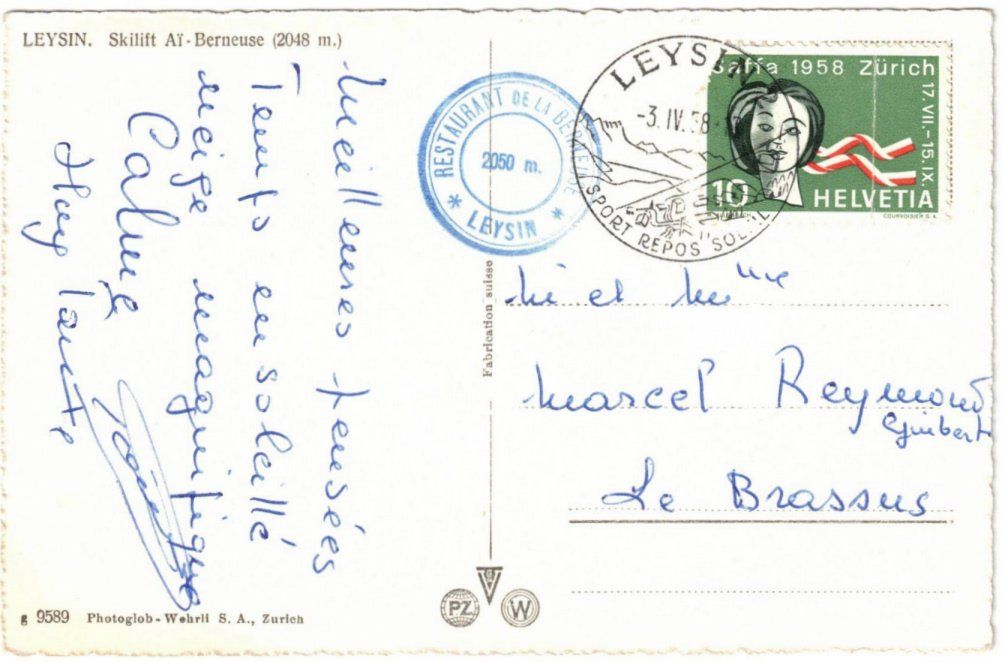 LEYSIN. Skilift Aï-Berneuse (2048 m.)
Meilleures pensées
Temps ensoleillé
neige magnifique
Calme
Fabrication suisse
RESTAURANT DE LA BERNEUSE
2050 m.
* LEYSIN *
LEYSIN
-3.IV.58
SPORT REPOS SOLEIL
Saffa 1958 Zürich
17.VII.-15.IX.
10
HELVETIA
COURVOISIER S.A.
et Mme
Marcel Reymond
Le Brassus
PZ
W
g 9589 Photoglob-Wehrli S. A., Zurich